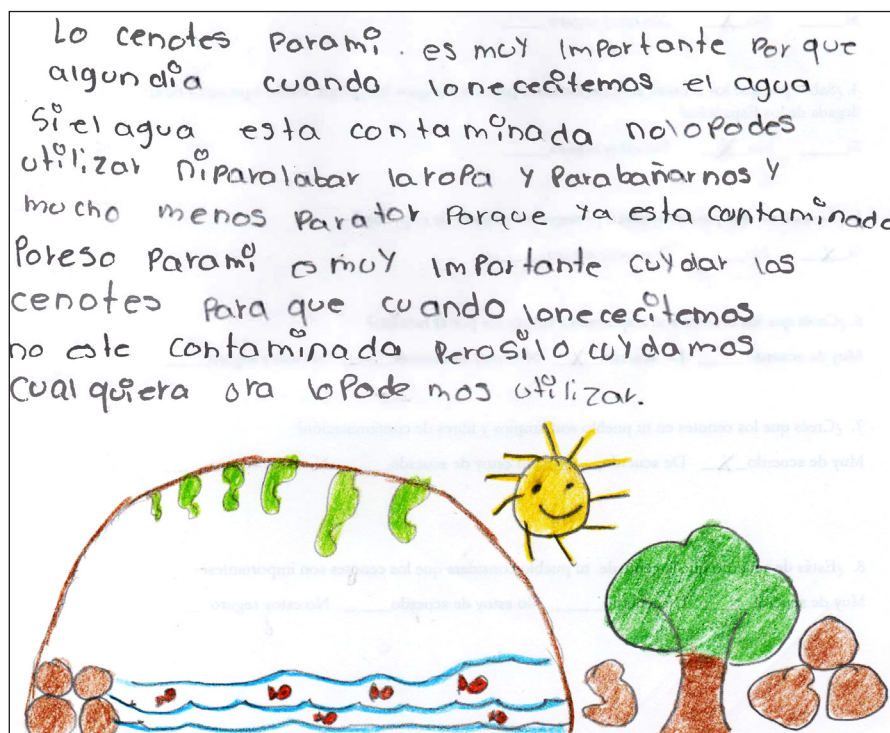 Lo cenotes Parami. es muy importante Por que
algun dia cuando lonececitemos el agua
Si el agua esta contaminada nolopodes
utilizar niparalabar laropa y Parabañarnos y
mucho menos Parator Porque ya esta contaminada
Poreso Parami es muy importante cuydar los
cenotes Para que cuando lonececitemos
no este contaminada Perosilo cuydamos
cualquiera ora loPodemos utilizar.